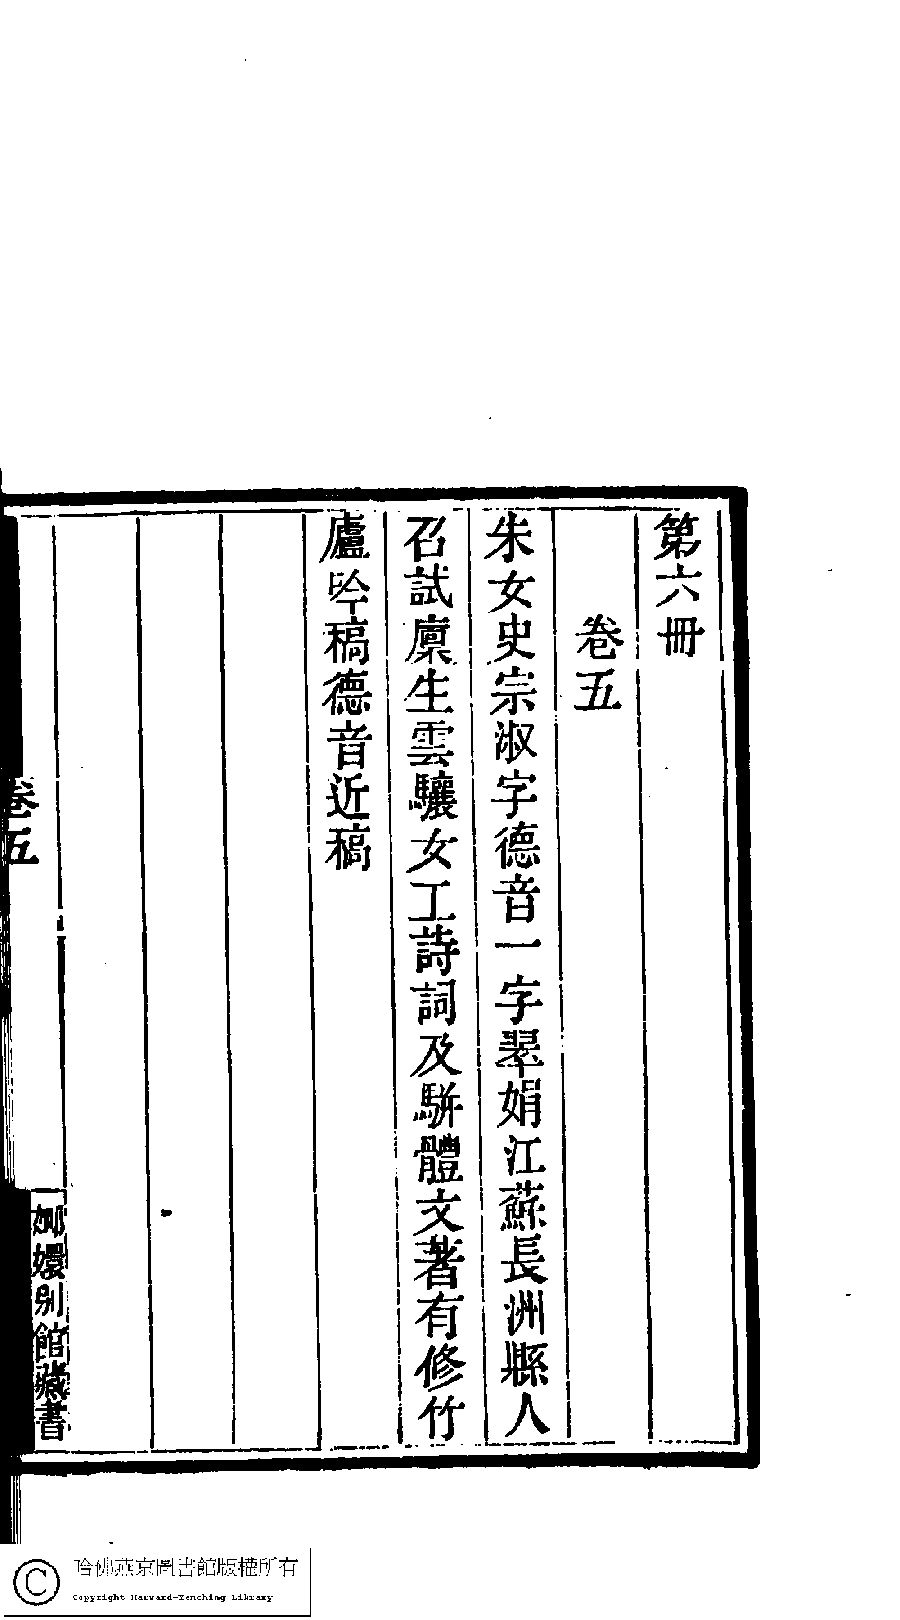 第六冊
卷五
朱女史宗淑字德音一字翠娟江蘇長洲縣人
召試廪生雲驤女工詩詞及駢體文著有修竹
廬吟稿德音近稿
卷五
一
嫏嬛別館藏書
哈佛燕京圖書館版權所有
Copyright Harvard-Yenching Library